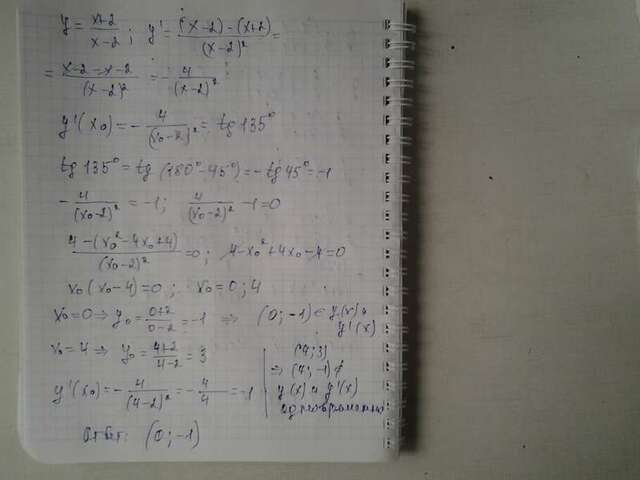 y = (x+2)/(x-2); y' = ((x-2)-(x+2))/(x-2)² =
= (x-2-x-2)/(x-2)² = -4/(x-2)²
y'(x₀) = -4/(x₀-2)² = tg 135°
tg 135° = tg (180°-45°) = -tg 45° = -1
-4/(x₀-2)² = -1; 4/(x₀-2)² -1=0
(4-(x₀²-4x₀+4))/(x₀-2)² = 0; 4-x₀²+4x₀-4=0
x₀(x₀-4)=0; x₀=0; 4
x₀=0 ⇒ y₀ = (0+2)/(0-2) = -1 ⇒ (0; -1) ∈ y(x) и
y'(x)
x₀=4 ⇒ y₀ = (4+2)/(4-2) = 3
(4; 3)
⇒ (4; -1) ∉
y'(x₀) = -4/(4-2)² = -4/4 = -1
y(x) и y'(x)
одновременно
Ответ: (0; -1)